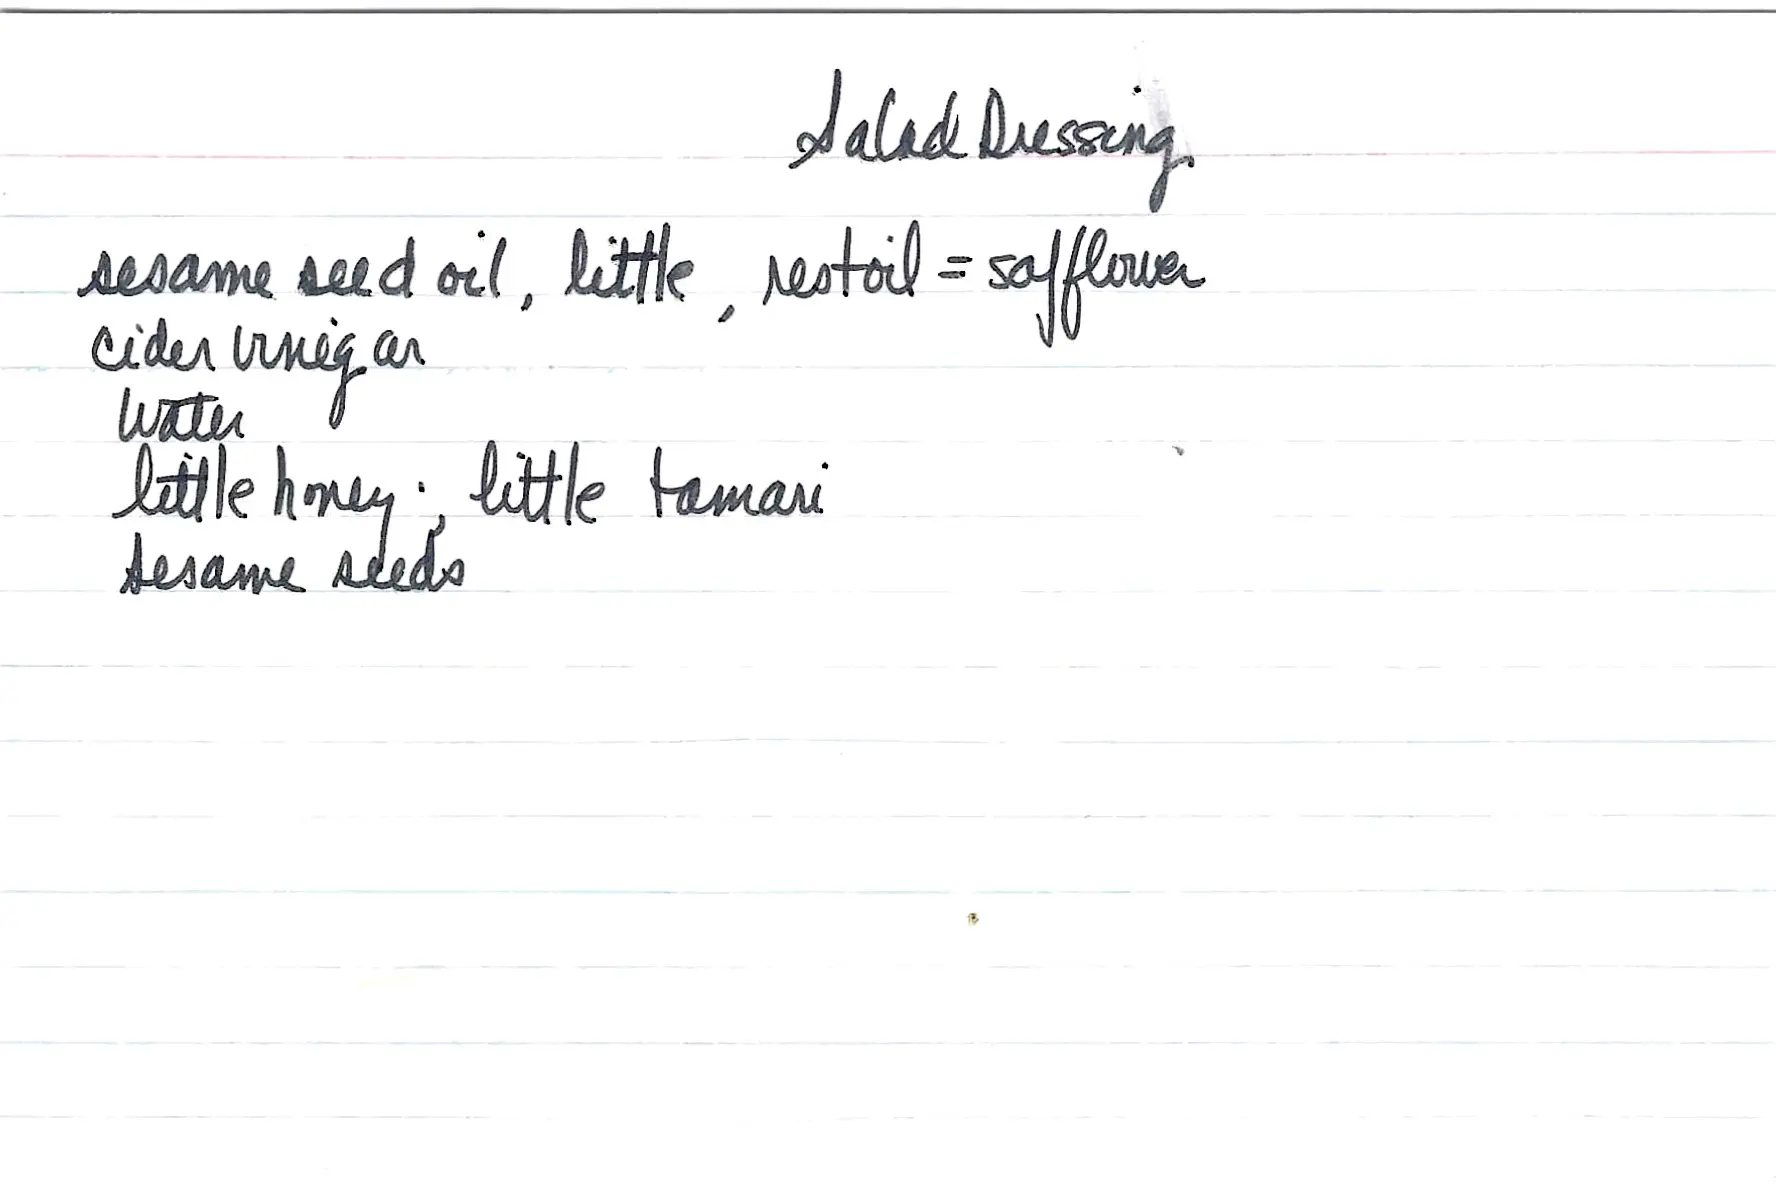 Salad Dressing.
sesame seed oil, little, rest oil = safflower
cider vinegar
water
little honey; little tamari
sesame seeds